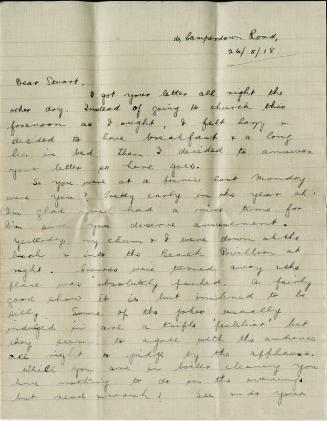 16, Camperdown Road,
26/5/18
Dear Stuart,
I got your letter all right the
other day. Instead of going to church this
forenoon as I ought, I felt lazy &
decided to have breakfast & a long
lie in bed. Then I decided to answer
your letter so here goes.
So you were at a picnic last Monday
were you? Pretty early in the year eh!
I'm glad you had a nice time for
I'm sure you deserve amusement.
Yesterday my chum & I were down at the
beach & into the Beach Pavilion at
night. Crowds were turned away & the
place was absolutely packed. A fairly
good show it is but inclined to be
silly. Some of the jokes usually
indulged in are a trifle peculiar but
they seem to agree with the audience
all right to judge by the applause.
While you are in boiler cleaning you
have nothing to do in the evenings
but read & wash! See & do your